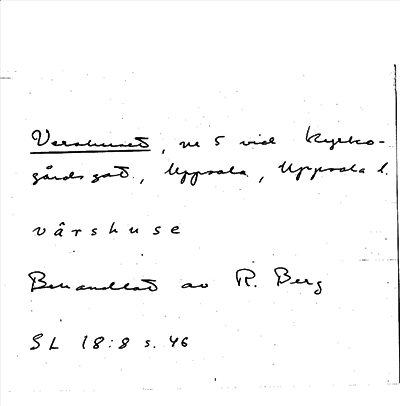 Vershuset, nr 5 vid Kyrko-
gårdsgat., Uppsala, Uppsala l.
vârshuse
Behandlat av R. Berg
SL 18:8 s. 46